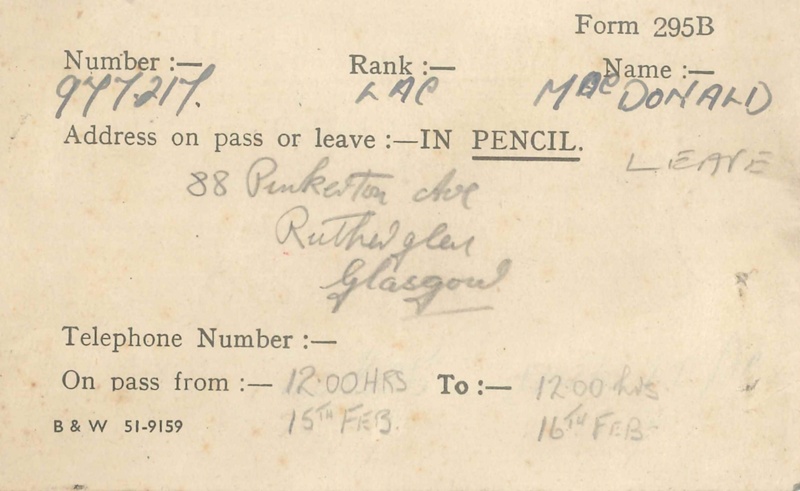 Form 295B
Number :— Rank :— Name :—
977217. LAC MacDONALD
Address on pass or leave :—IN PENCIL.
LEAVE
88 Pinkerton Ave
Rutherglen
Glasgow
Telephone Number :—
On pass from :— 12.00HRS To :— 12.00 hrs
15TH FEB. 16TH FEB
B & W 51-9159